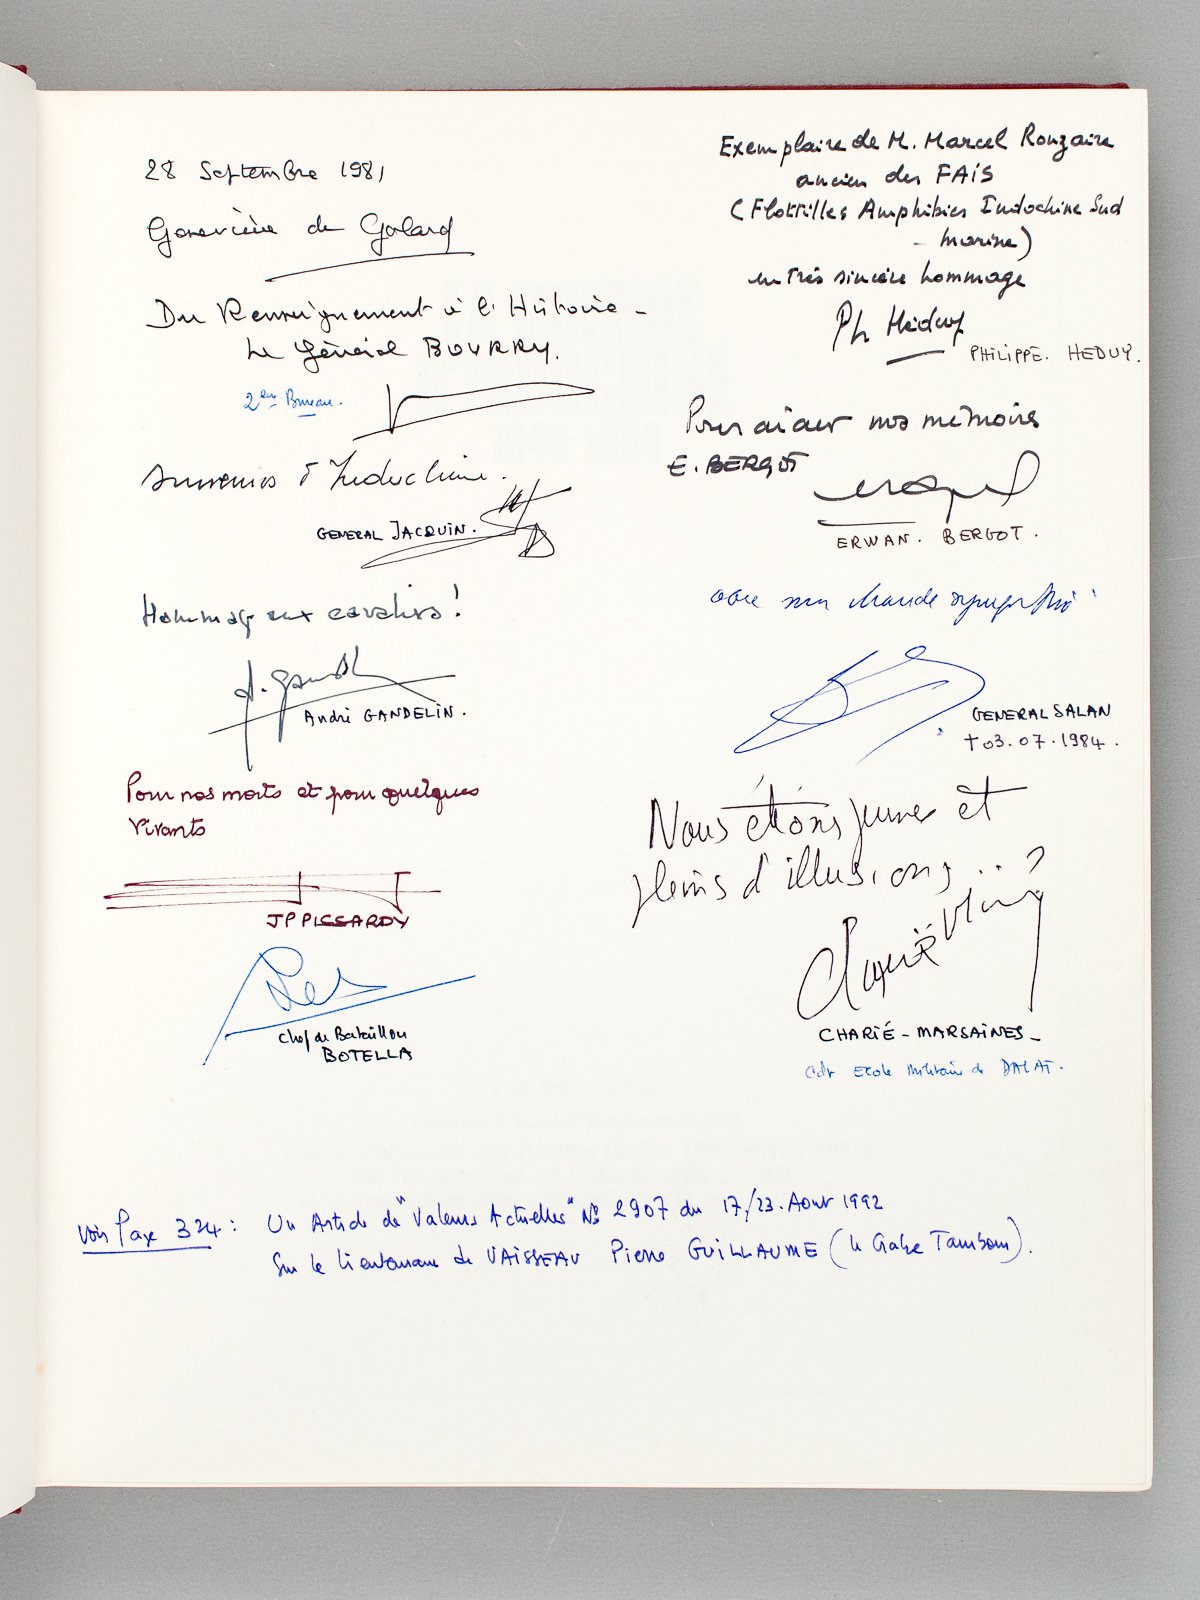 28 Septembre 1981
Geneviève de Galard
Du Renseignement à l'Histoire -
Le Général BOURRY.
2ème Bureau.
Souvenirs d'Indochine.
GENERAL JACQUIN.
Hommage aux cavaliers!
A. Gandelin
André GANDELIN.
Pour nos morts et pour quelques
vivants
JP PISSARDY
Chef de Bataillon
BOTELLA
Exemplaire de M. Marcel Rouzaire
ancien des FAIS
(Flottilles Amphibies Indochine Sud
- marine)
en très sincère hommage
Ph Héduy
PHILIPPE. HEDUY.
Pour aider nos mémoires
E. BERGOT
ERWAN. BERGOT.
avec ma chaude sympathie
GENERAL SALAN
† 03.07.1984.
Nous étions jeunes et
pleins d'illusions...?
CHARIÉ - MARSAINES -
Cdt Ecole Militaire de DALAT.
Voir Page 324: Un Article de "Valeurs Actuelles" N° 2907 du 17/23. Aout 1992
Sur le Lieutenant de VAISSEAU Pierre GUILLAUME (le Crabe Tambour).